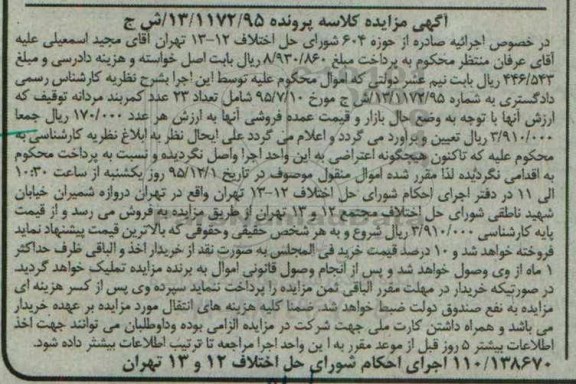 آگهی مزایده کلاسه پرونده ۱۳/۱۱۷۲/۹۵/ش ح
در خصوص اجرائیه صادره از حوزه ۶۰۴ شورای حل اختلاف ۱۲-۱۳ تهران آقای مجید اسمعیلی علیه
آقای عرفان منتظر محکوم به پرداخت مبلغ ۸/۹۳۰/۸۶۰ ریال بابت اصل خواسته و هزینه دادرسی و مبلغ
۴۴۶/۵۴۳ ریال بابت نیم عشر دولتی که اموال محکوم علیه توسط این اجرا بشرح نظریه کارشناس رسمی
دادگستری به شماره ۱۳/۱۱۷۲/۹۵/ش ج مورخ ۹۵/۷/۱۰ شامل تعداد ۲۳ عدد کمربند مردانه توقیف که
ارزش آنها با توجه به وضع حال بازار و قیمت عمده فروشی آنها به ارزش هر عدد ۱۷۰/۰۰۰ ریال جمعا
۳/۹۱۰/۰۰۰ ریال تعیین و برآورد می گردد و اعلام می گردد علی ایحال نظر به ابلاغ نظریه کارشناسی به
محکوم علیه که تاکنون هیچگونه اعتراضی به این واحد اجرا واصل نگردیده و نسبت به پرداخت محکوم
به اقدامی نگردیده لذا مقرر شده اموال منقول موصوف در تاریخ ۹۵/۱۲/۱ روز یکشنبه از ساعت ۱۰:۳۰
الی ۱۱ در دفتر اجرای احکام شورای حل اختلاف ۱۲-۱۳ تهران واقع در تهران دروازه شمیران خیابان
شهید ناطقی شورای حل اختلاف مجتمع ۱۲ و ۱۳ تهران از طریق مزایده به فروش می رسد و از قیمت
پایه کارشناسی ۳/۹۱۰/۰۰۰ ریال شروع و به هر شخص حقیقی وحقوقی که بالاترین قیمت پیشنهاد نماید
فروخته خواهد شد و ۱۰ درصد قیمت خرید فی المجلس به صورت نقد از خریدار اخذ و الباقی ظرف حداکثر
۱ ماه از وی وصول خواهد شد و پس از انجام وصول قانونی اموال به برنده مزایده تملیک خواهد گردید.
در صورتیکه خریدار در مهلت مقرر الباقی ثمن مزایده را پرداخت ننماید سپرده وی پس از کسر هزینه ای
مزایده به نفع صندوق دولت ضبط خواهد شد. ضمنا کلیه هزینه های انتقال مورد مزایده بر عهده خریدار
می باشد و همراه داشتن کارت ملی جهت شرکت در مزایده الزامی بوده وداوطلبان می توانند جهت اخذ
اطلاعات بیشتر ۵ روز قبل از موعد مقرر به ا ین واحد اجرا مراجعه تا ترتیب اطلاعات بیشتر داده شود.
۱۱۰/۱۳۸۶۷۰ اجرای احکام شورای حل اختلاف ۱۲ و ۱۳ تهران